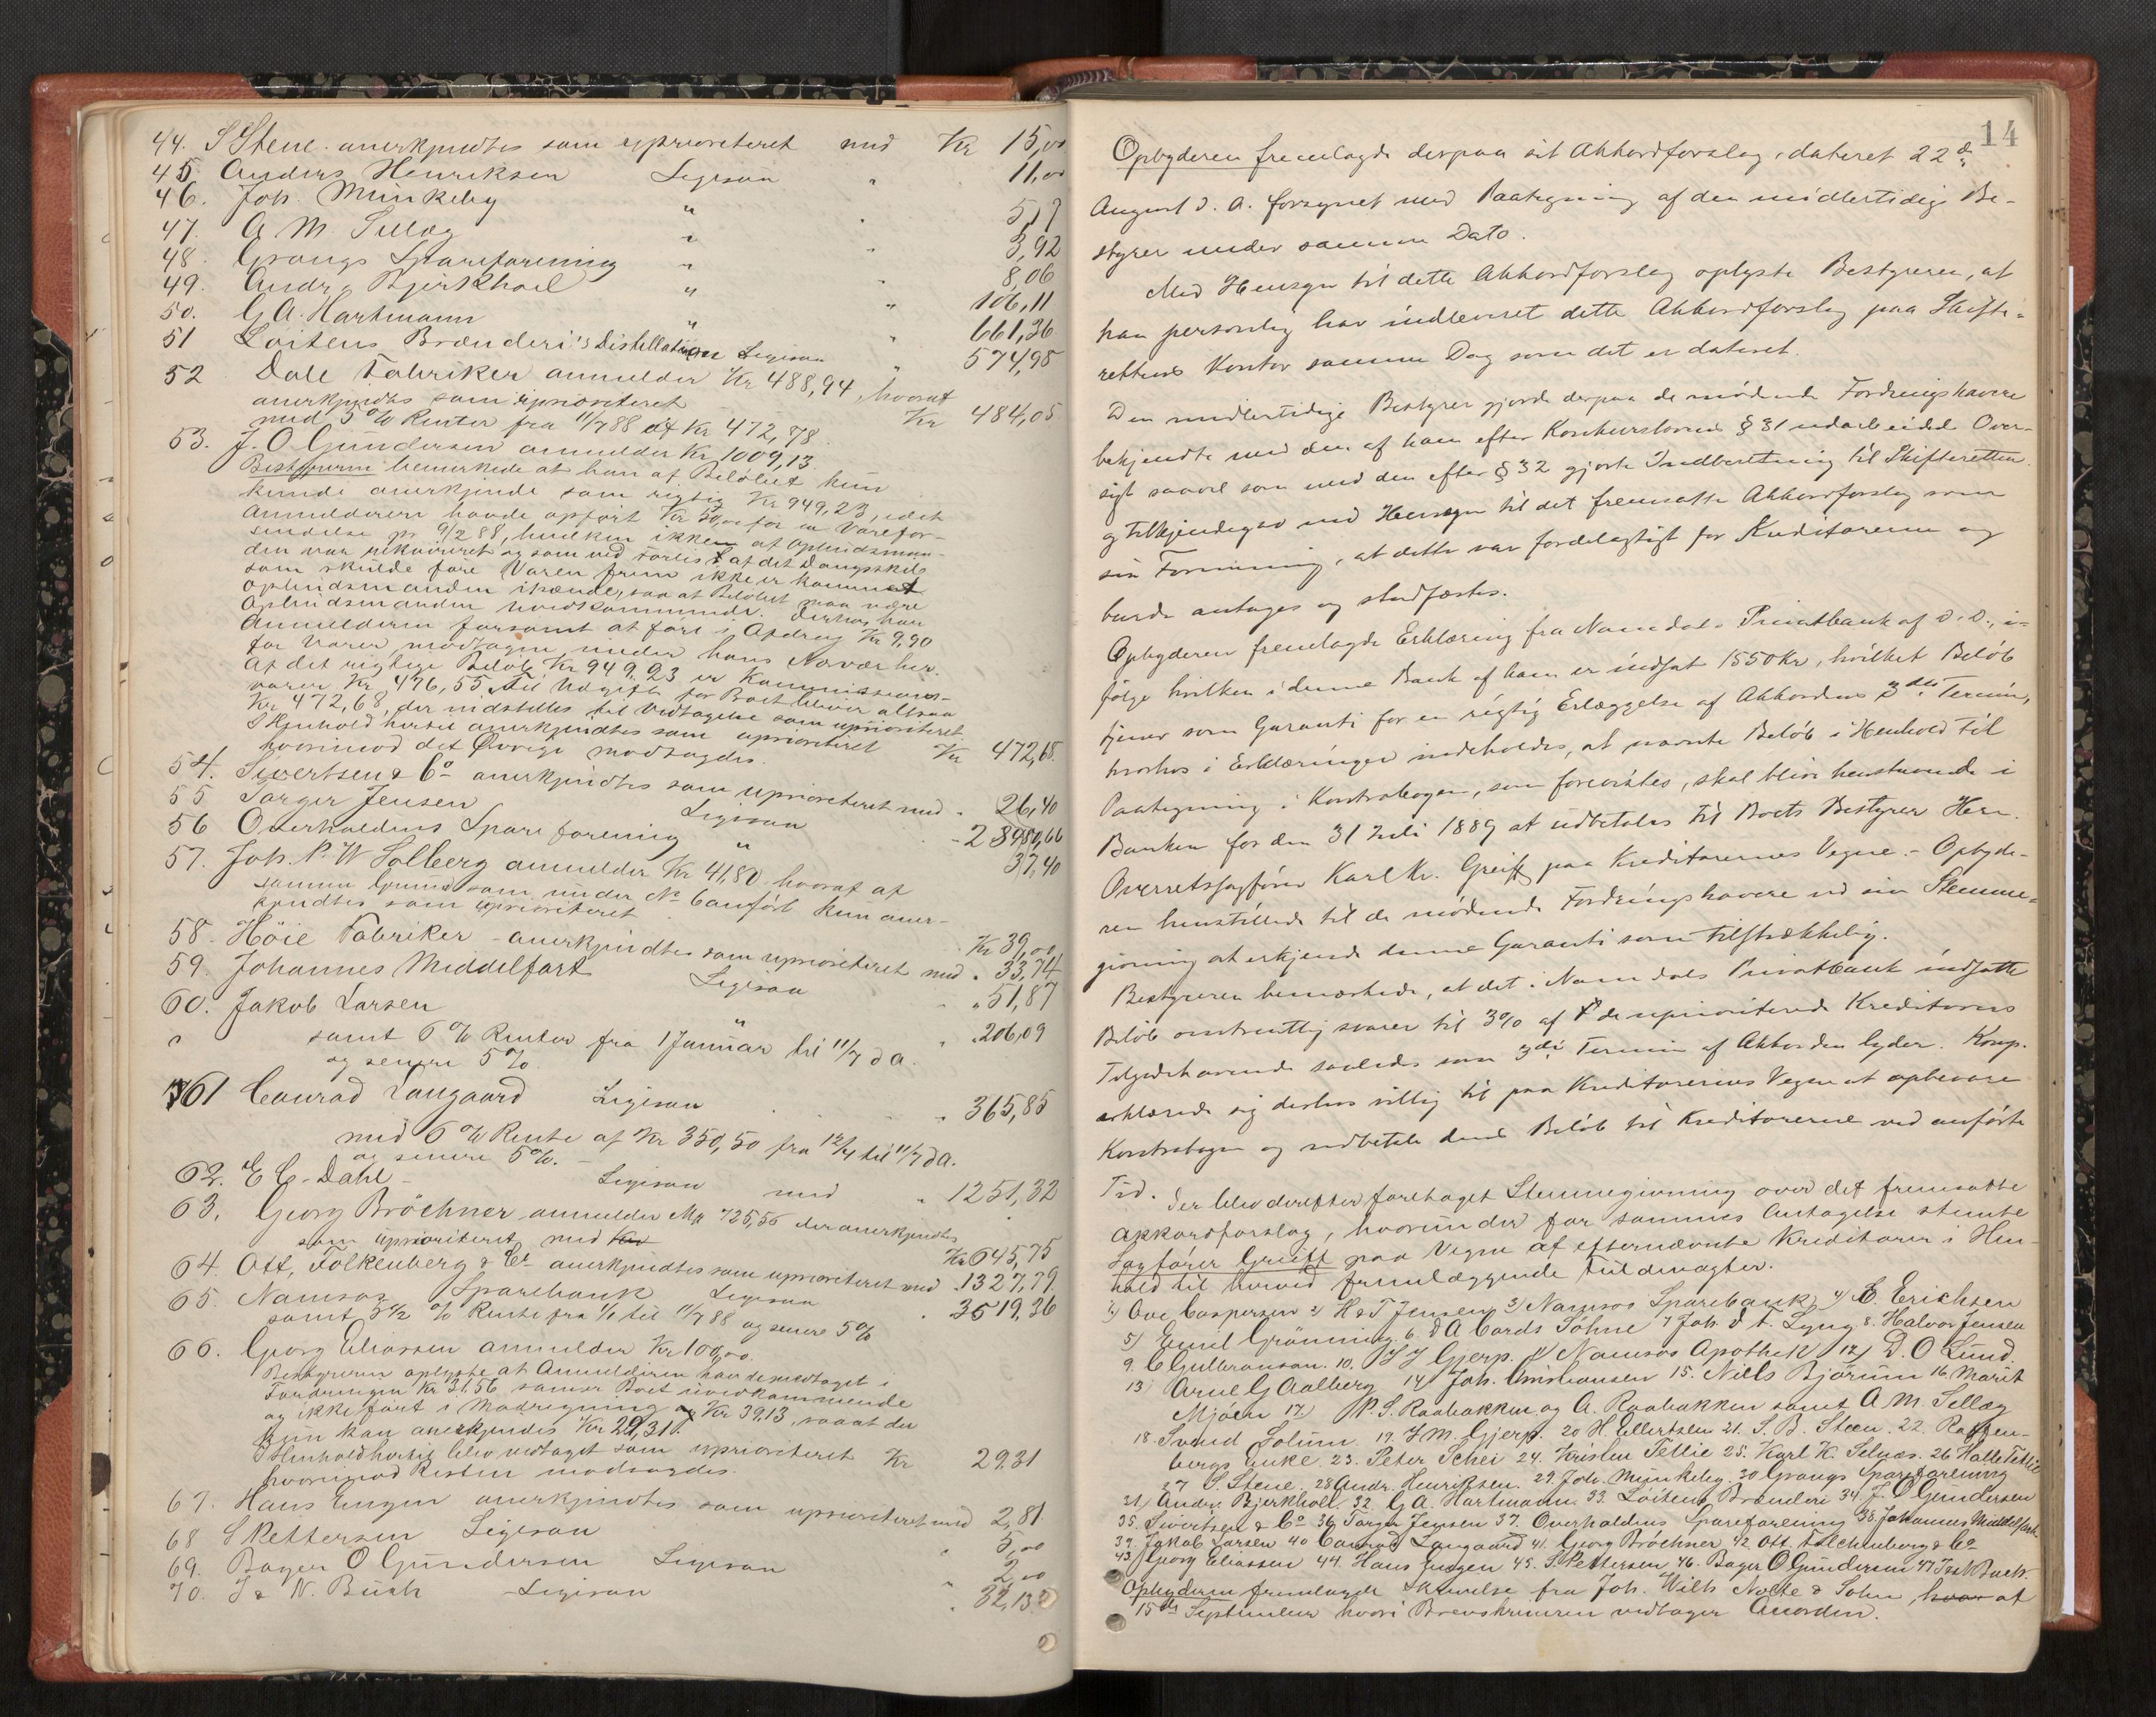 44. S Stene anerkjendtes som uprioriteret med Kr 15,00
45. Anders Henriksen Ligesaa " 11,00
46. Joh. Münkeby " "
47. A M Sellæg " " 3,92
48. Grongs Spareforening " " 8,06
49. Andr. Bjerkhoel " " 106,11
50. G A. Hartmann " " 661,36
51 Loitens Brænderi's Distillation Ligesaa " 574,95
52 Dale Fabriker anmelder Kr 488,94, hvoraf
anerkjendtes som uprioriteret Kr 484,05
med 5 % Renter fra 11/7 88 af Kr 472,78.
53. J. O Gundersen anmelder Kr 1009,13.
Bestyreren bemærkede at han af Beløbet kun
kunde anerkjende som rigtig Kr 949,23, idet
Anmelderen havde opført Kr 50,00 for en Varefor-
sendelse pr 9/2 88, hvilken ikke af Opbudsman-
den var rekvireret og som ved Forlis af det Dampskib
som skulde føre Varen frem ikke er kommet
Opbudsmanden ihænde, saa at Beløbet maa være
Opbudsmanden uvedkommende. Derhos har
Anmelderen forsømt at føre i Afdrag Kr 9,90
for Varer modtagen under hans Nærvær her.
Af det rigtige Beløb Kr 949,23 er Kommissions-
varer Kr 476,55. Til Udgift for Boet bliver altsaa
Kr 472,68, der indstilles til Vedtagelse som uprioriteret.
I Henhold hertil anerkjendtes som uprioriteret Kr 472,68
hvorimod det Øvrige modsagdes.
54. Sivertsen & Co anerkjendtes som uprioriteret med " 26,40
55 Torger Jensen Ligesaa
56 Overhaldens Spareforening "
57. Joh. P. W Solberg anmelder Kr 41,80 hvoraf af
samme Grund som under No 6 anført kun aner-
kjendtes som uprioriteret Kr 39,00
58. Höie Fabriker - anerkjendtes som uprioriteret med " 33,74
59. Johannes Middelfart Ligesaa " 51,87
60. Jakob Larsen " " 206,09
samt 6 % Renter fra 1 Januar til 11/7 d A.
og senere 5 %
61 Conrad Langaard Ligesaa " 365,85
med 6 % Rente af Kr 350,50 fra 12/4 til 11/7 d A.
og senere 5 %.
62. E C. Dahl - Ligesaa med " 1251,32
63. Georg Bröchner anmelder Mk 725,56 der anerkjendtes
som uprioriteret med Kr 645,75
64. Ott, Folkenberg & Co anerkjendtes som uprioriteret med " 1327,79
65. Namsos Sparebank Ligesaa " 3519,36
samt 5 1/2 % Rente fra 1/1 til 11/7 88 og senere 5 %
66. Georg Eliassen anmelder Kr 100,00.
Bestyreren oplyste at Anmelderen har medtaget i
Fordringen Kr 31,56 som er Boet uvedkommende
og ikke ført i Modregning Kr 39,13, saaat der
kun kan anerkjendes Kr 29,31.
I Henhold hertil blev vedtaget som uprioriteret Kr 29,31
hvorimod Resten modsagdes.
67. Hans Engen anerkjendtes som uprioriteret med 2,81
68 S Pettersen Ligesaa " 5,00
69. Bager O Gundersen Ligesaa " 2,00
70. I & N. Buch - Ligesaa " 32,13
14
Opbyderen fremlagde derpaa sit Akkordforslag, dateret 22de
August d. A. forsynet med Paategning af den midlertidige Be-
styrer under samme Dato.
Med Hensyn til dette Akkordforslag oplyste Bestyreren, at
han personlig har indleveret dette Akkordforslag paa Skifte-
rettens Kontor samme Dag som det er dateret.
Den midlertidige Bestyrer gjorde derpaa de mødende Fordringshavere
bekjendte med den af ham efter Konkurslovens § 31 udarbeidede Over-
sigt saavel som med den efter § 32 gjorte Indberetning til Skifteretten
og tilkjendegav med Hensyn til det fremsatte Akkordforslag som
sin Formening, at dette var fordelagtigt for Kreditorerne og
burde antages og stadfæstes.
Opbyderen fremlagde Erklæring fra Namdals Privatbank af d. D., i-
følge hvilken i denne Bank af ham er indsat 1550 Kr, hvilket Beløb
tjener som Garanti for en rigtig Erlæggelse af Akkordens 3die Termin,
hvorhos i Erklæringen indeholdes, at nævnte Beløb i Henhold til
Paategning i Kontrabogen, som foreviistes, skal blive henstaaende i
Banken for den 31 Juli 1889 at udbetales til Boets Bestyrer Herr.
Overretssagfører Karl Kr. Greiff paa Kreditorernes Vegne. - Opbyde-
ren henstillede til de mødende Fordringshavere ved sin Stemme-
givning at erkjende denne Garanti som tilstrækkelig.
Bestyreren bemærkede, at det i Namdals Privatbank indsatte
Beløb omtrentlig svarer til 3% af de uprioriterede Kreditorers
Tilgodehavende saaledes som 3die Termin af Akkorden lyder. Komp.
erklærede sig derhos villig til paa Kreditorernes Vegne at opbevare
Kontrabogen og udbetale dens Beløb til Kreditorerne ved anførte
Tid.
Der blev derefter foretaget Stemmegivning over det fremsatte
Akkordforslag, hvorunder for sammes Antagelse stemte
Sagfører Greiff paa Vegne af efternævnte Kreditorer i Hen-
hold til herved fremlæggende Fuldmagter.
1) Ove Caspersen 2) H & T Jensen 3) Namsos Sparebank 4) E. Erichsen
5) Emil Grönning. 6. d A Cords Söhne 7 Joh. d. t. Lyng 8. Halvor Jensen
9. C Gulbranson. 10. Gjerp. 11) Namsos Apothek 12) D. O Lund
13) Arne G Aalberg 14) Joh. Christiansen 15. Niels Bjørum 16. Marit
Mjøen 17) P. S. Raabakken og A. Raabakken samt A. M. Sellæg
18 Svend Solum. 19. J M. Gjerp. 20 H. Ellertsen 21. S. B. Steen. 22. Raffen-
bergs Enke. 23. Peter Schei 24. Kristen Tetlie 25. Karl K. Selnæs. 26 Halle Tetlie
27 S. Stene. 28 Andr. Henriksen. 29. Joh. Münkeby. 30 Grongs Spareforening
31) Andr. Bjerkholl. 32. G A. Hartmann. 33. Loitens Brænderi 34. J. O Gundersen
35. Sivertsen & Co 36 Torger Jensen 37. Overhaldens Spareforening 38. Johannes Middelfart
39. Jakob Larsen 40 Conrad Langaard 41. Georg Bröchner 42 Ott Folckenberg & Co
43) Georg Eliassen 44. Hans Engen 45. S. Pettersen 46. Bager O Gundersen 47 I & N Buch.
Opbyderen fremlagde Skrivelse fra Joh. Wilh Nolte & Sohn, hvor af
15de September hvori Brevskriveren vedtager Accorden.